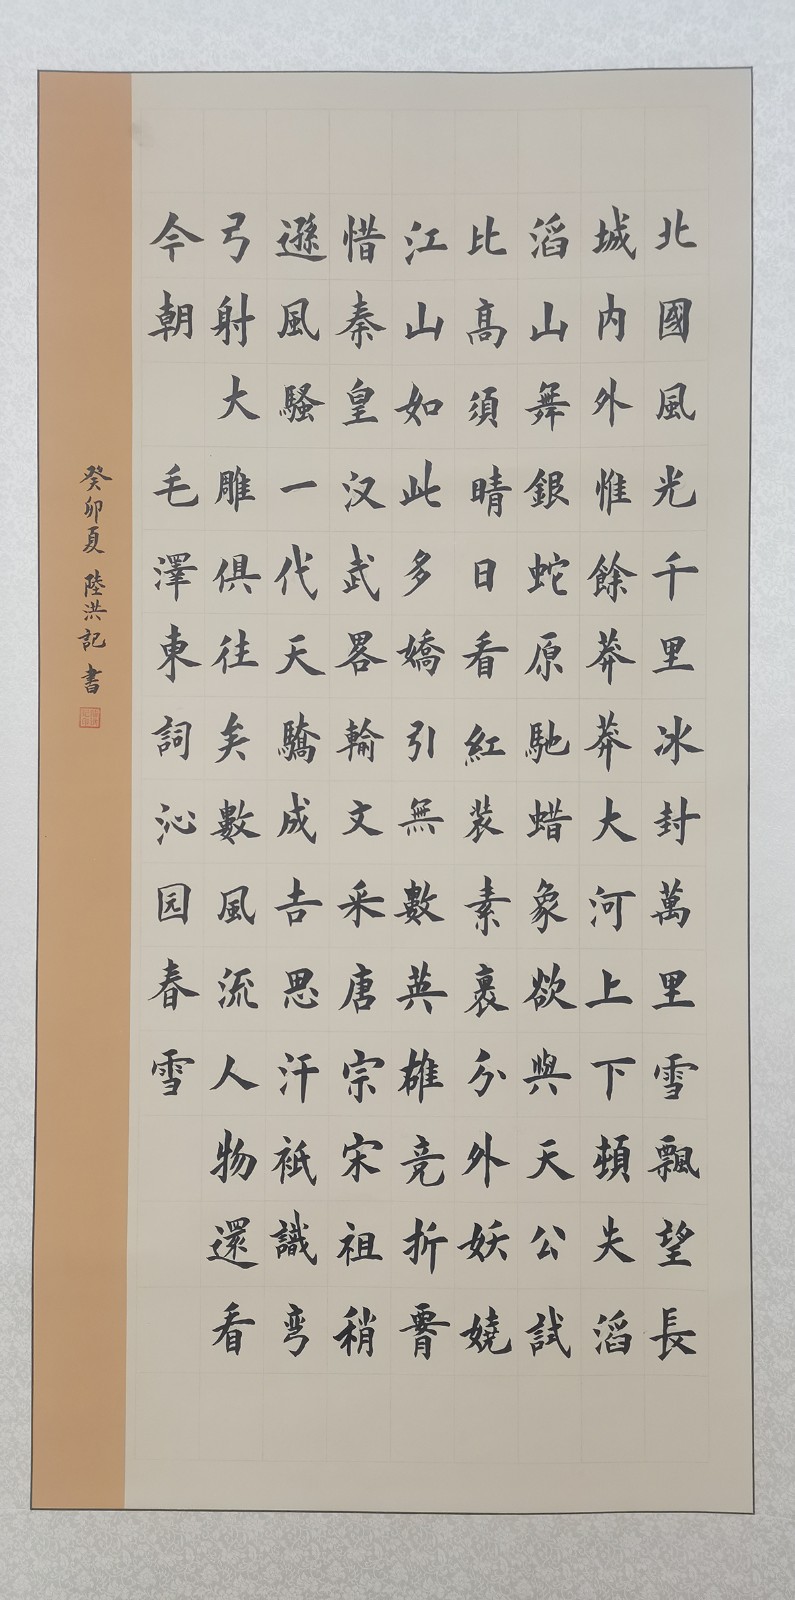 北國風光千里冰封萬里雪飄望長
城内外惟餘莽莽大河上下頓失滔
滔山舞銀蛇原馳蜡象欲與天公試
比高須晴日看紅装素裹分外妖嬈
江山如此多嬌引無數英雄竞折
惜秦皇汉武畧輸文采唐宗宋祖稍
遜風騷一代天驕成吉思汗衹識弯
弓射大雕俱往矣數風流人物還看
今朝
毛澤東詞沁园春雪
癸卯夏 陸洪記 書